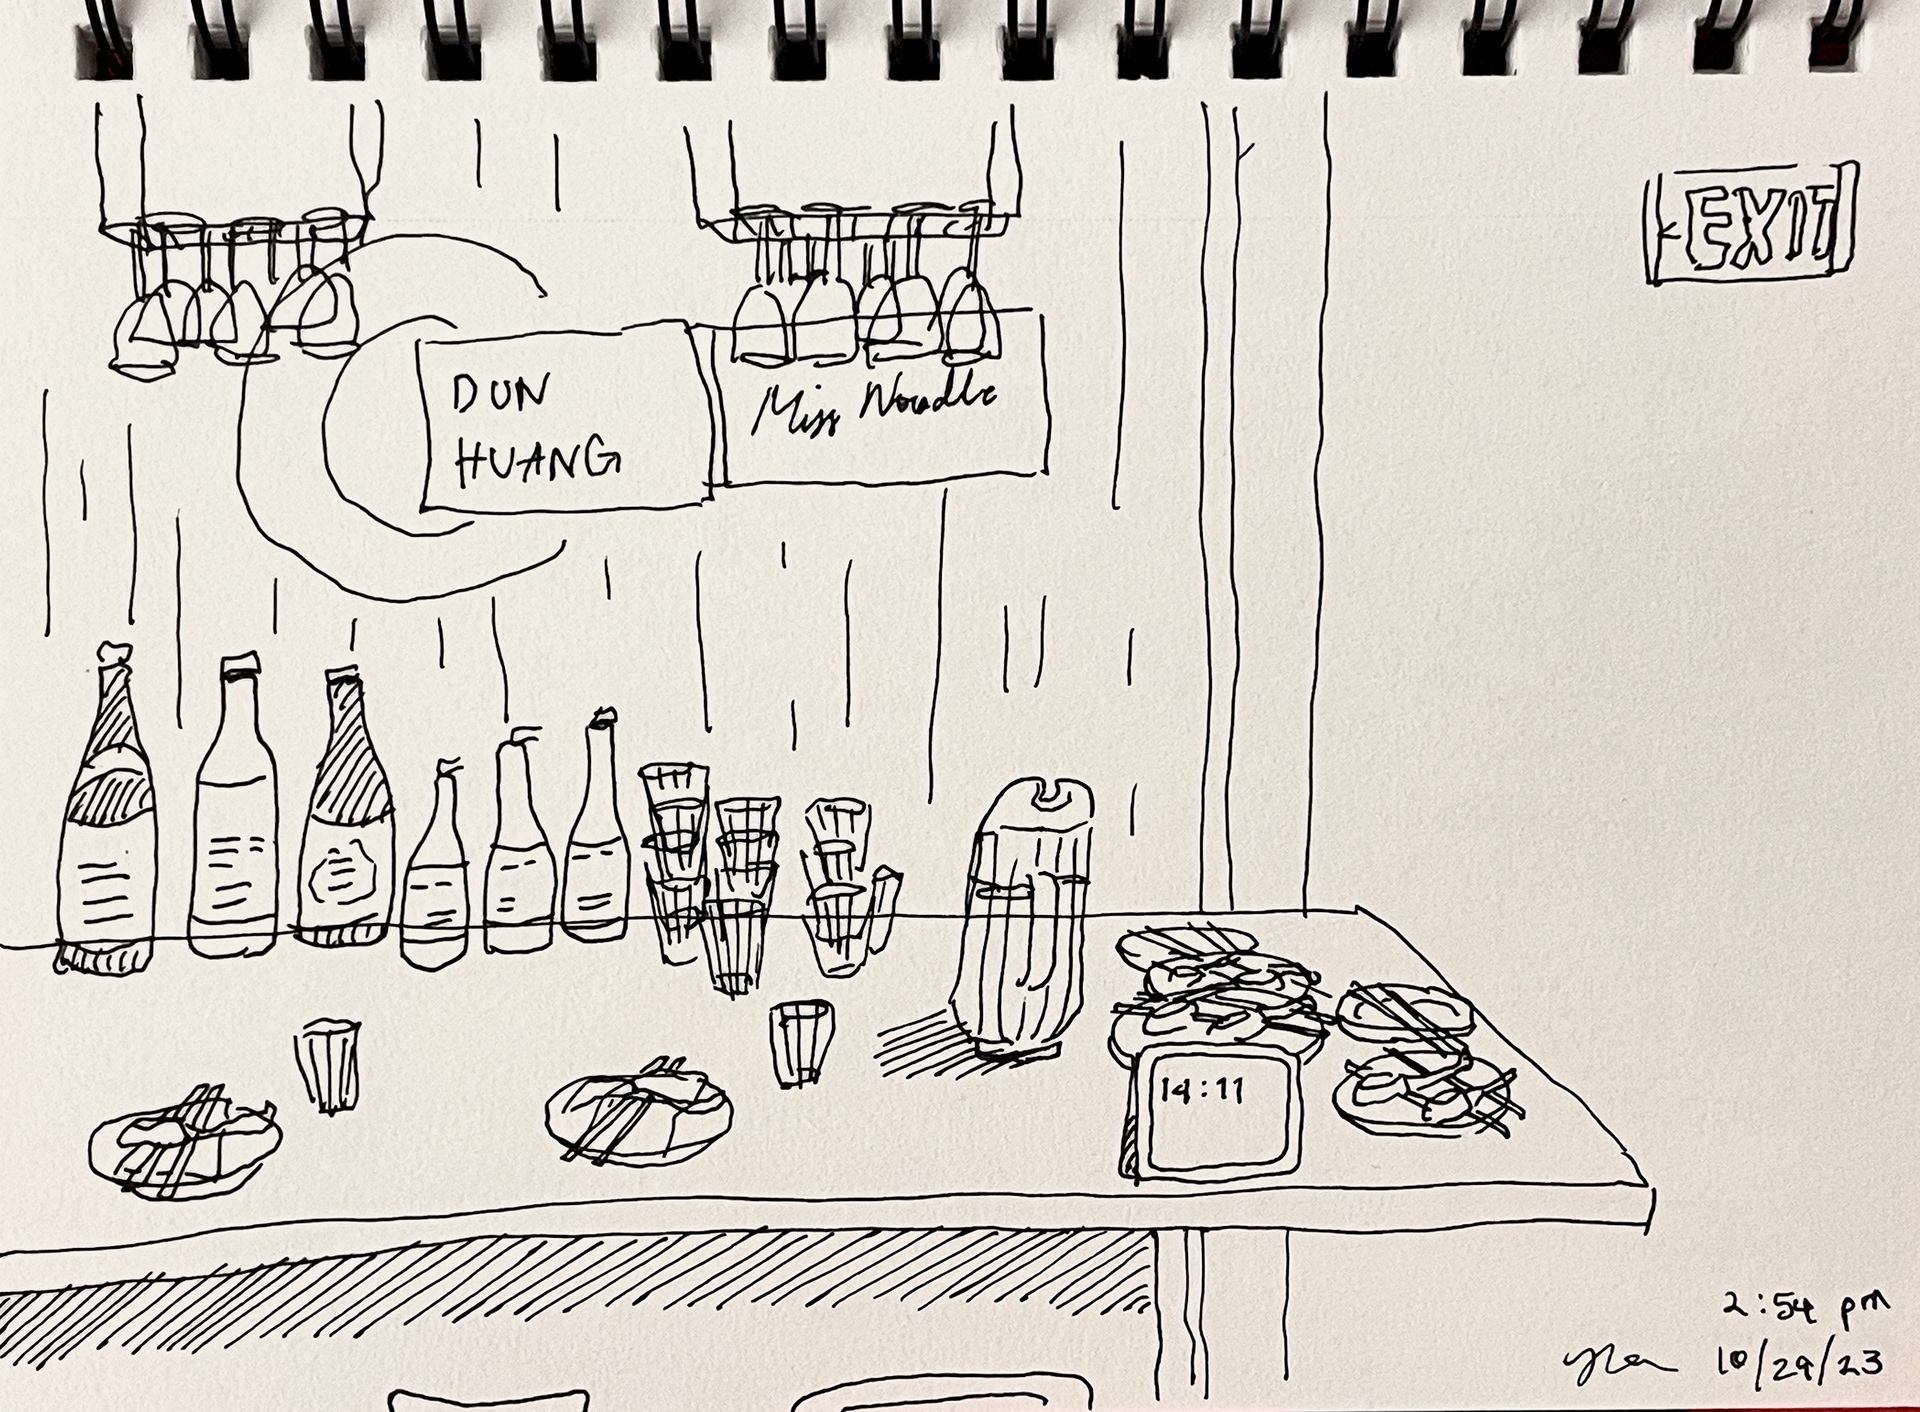 EXIT
DUN
HUANG
Miss Noodle
14:11
2:54 pm
10/29/23